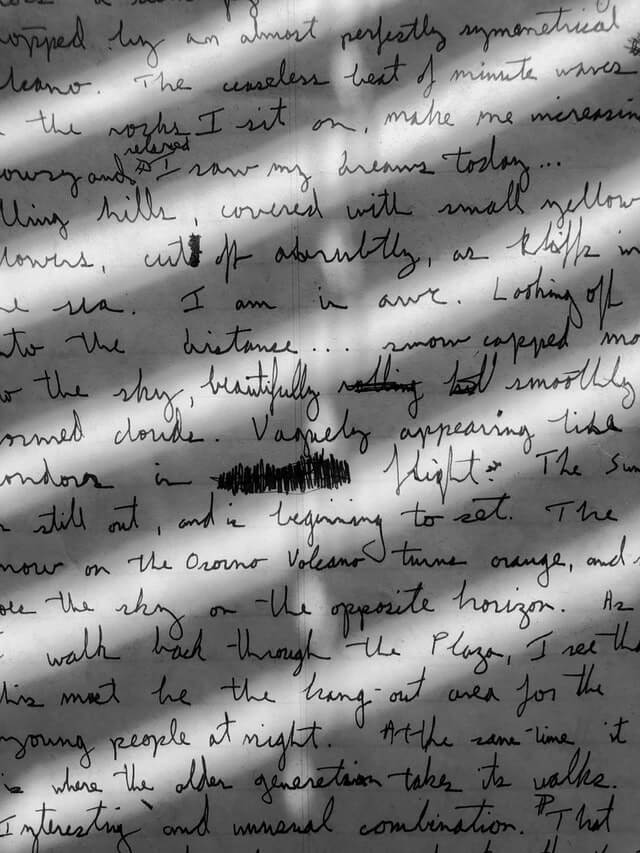 by an almost perfectly symmetrical
The ceaseless beat of minute waves
the rocks I sit on, make me increasin
relaxed
owsy and I saw my dreams today...
lling hills, covered with small yellow
lowers, cut off abrubtly, as kliffs in
e sea. I am in awe. Looking off
nto the distance.... snow capped mo
o the sky, beautifully rolling smoothly
ormed clouds. Vaguely appearing like
ondors in flight. The Sun
s still out, and is beginning to set. The
now on the Osorno Volcano turns orange, and s
oes the sky on the opposite horizon. As
I walk back through the Plaza, I see tha
his must be the hang-out area for the
young people at night. At the same-time it
is where the older generation takes its walks.
Interesting and unusual combination. That